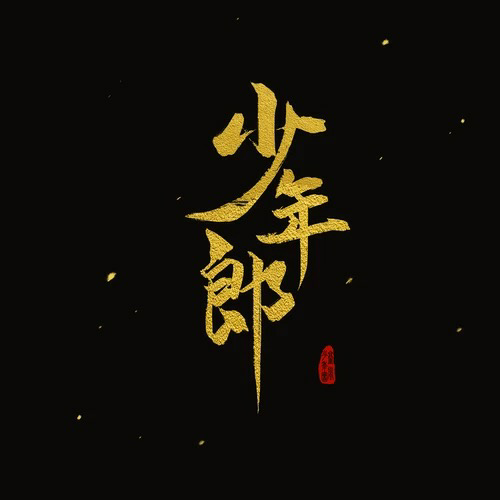 少年郎